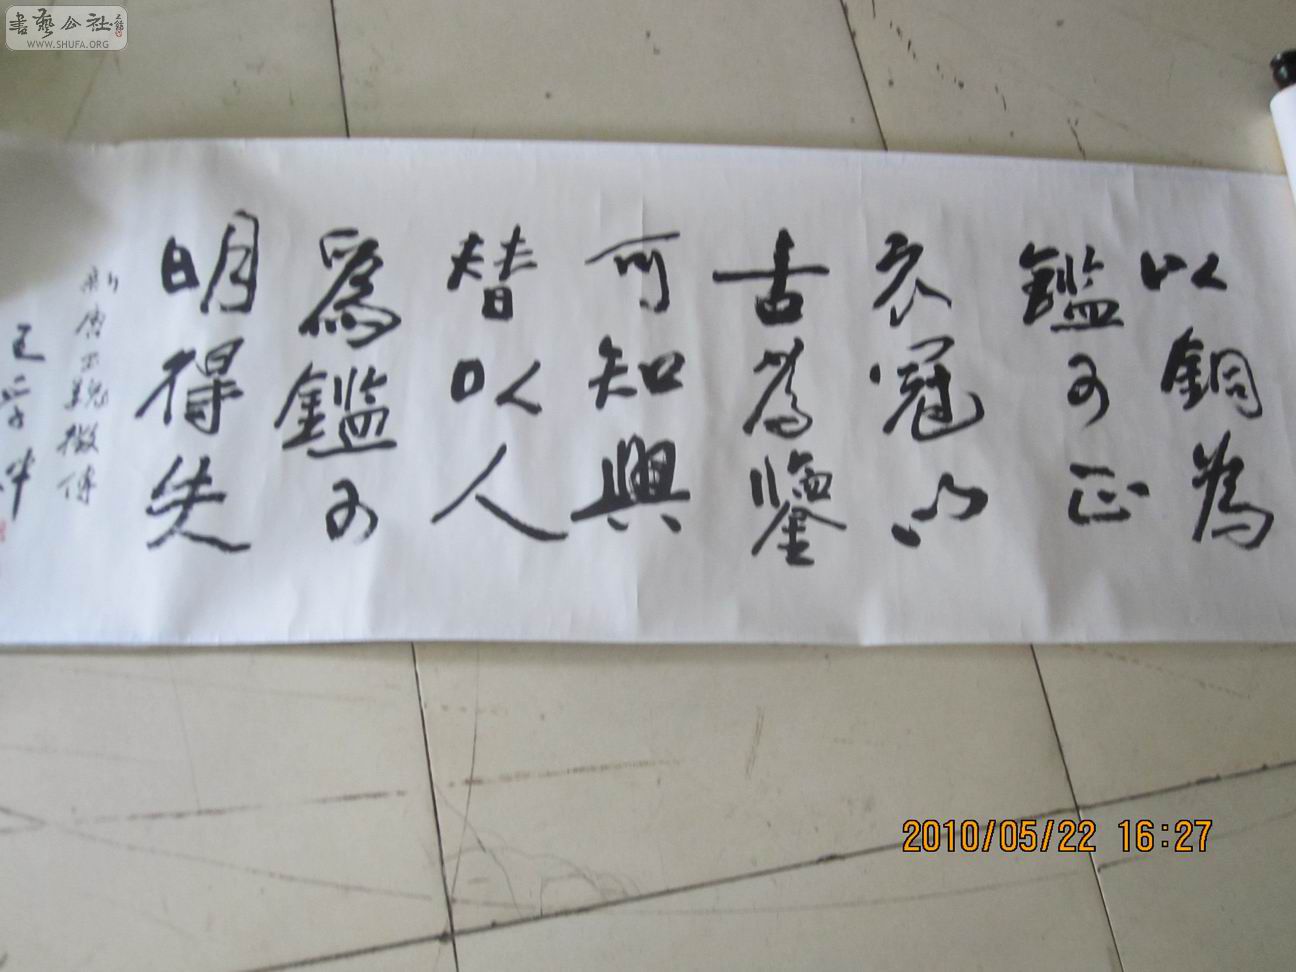 以銅為
鑑可正
衣冠以
古為鑒
可知興
替以人
為鑑可
明得失
新唐書魏徵傳
王學
書藝公社
WWW.SHUFA.ORG
2010/05/22 16:27